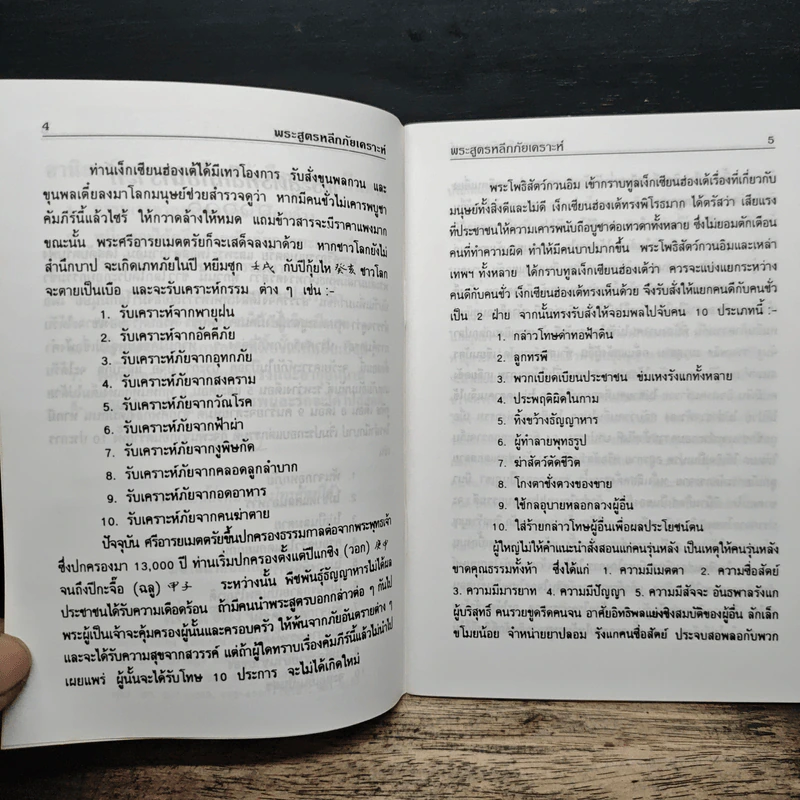 4
พระสูตรหลีกภัยเคราะห์
ท่านเง็กเซียนฮ่องเต้ได้มีเทวโองการ รับสั่งขุนพลกวน และ
ขุนพลเตี๋ยลงมาโลกมนุษย์ช่วยสำรวจดูว่า หากมีคนชั่วไม่เคารพบูชา
คัมภีร์นี้แล้วไซร้ ให้กวาดล้างให้หมด แถมข้าวสารจะมีราคาแพงมาก
ขณะนั้น พระศรีอารยเมตตรัยก็จะเสด็จลงมาด้วย หากชาวโลกยังไม่
สำนึกบาป จะเกิดเภทภัยในปี หยิมซุก 壬戌 กับปีกุ้ยไห 癸亥 ชาวโลก
จะตายเป็นเบือ และจะรับเคราะห์กรรม ต่าง ๆ เช่น :-
1. รับเคราะห์จากพายุฝน
2. รับเคราะห์จากอัคคีภัย
3. รับเคราะห์ภัยจากอุทกภัย
4. รับเคราะห์ภัยจากสงคราม
5. รับเคราะห์ภัยจากวัณโรค
6. รับเคราะห์ภัยจากฟ้าผ่า
7. รับเคราะห์ภัยจากงูพิษกัด
8. รับเคราะห์ภัยจากคลอดลูกลำบาก
9. รับเคราะห์ภัยจากอดอาหาร
10. รับเคราะห์ภัยจากคนฆ่าตาย
ปัจจุบัน ศรีอารยเมตตรัยขึ้นปกครองธรรมกาลต่อจากพระพุทธเจ้า
ซึ่งปกครองมา 13,000 ปี ท่านเริ่มปกครองตั้งแต่ปีแกซิง (วอก) 庚申
จนถึงปีกะจื๊อ (ฉลู) 甲子 ระหว่างนั้น พืชพันธุ์ธัญญาหารไม่ได้ผล
ประชาชนได้รับความเดือดร้อน ถ้ามีคนนำพระสูตรบอกกล่าวต่อ ๆ กันไป
พระผู้เป็นเจ้าจะคุ้มครองผู้นั้นและครอบครัว ให้พ้นจากภัยอันตรายต่าง ๆ
และจะได้รับความสุขจากสวรรค์ แต่ถ้าผู้ใดทราบเรื่องคัมภีร์นี้แล้วไม่นำไป
เผยแพร่ ผู้นั้นจะได้รับโทษ 10 ประการ จะไม่ได้เกิดใหม่
พระสูตรหลีกภัยเคราะห์
5
พระโพธิสัตว์กวนอิม เข้ากราบทูลเง็กเซียนฮ่องเต้เรื่องที่เกี่ยวกับ
มนุษย์ทั้งสิ่งดีและไม่ดี เง็กเซียนฮ่องเต้ทรงพิโรธมาก ได้ตรัสว่า เสียแรง
ที่ประชาชนให้ความเคารพนับถือบูชาต่อเทวดาทั้งหลาย ซึ่งไม่ยอมตักเตือน
คนที่ทำความผิด ทำให้มีคนบาปมากขึ้น พระโพธิสัตว์กวนอิมและเหล่า
เทพฯ ทั้งหลาย ได้กราบทูลเง็กเซียนฮ่องเต้ว่า ควรจะแบ่งแยกระหว่าง
คนดีกับคนชั่ว เง็กเซียนฮ่องเต้ทรงเห็นด้วย จึงรับสั่งให้แยกคนดีกับคนชั่ว
เป็น 2 ฝ่าย จากนั้นทรงรับสั่งให้จอมพลไปจับคน 10 ประเภทนี้ :-
1. กล่าวโทษด่าทอฟ้าดิน
2. ลูกทรพี
3. พวกเบียดเบียนประชาชน ข่มเหงรังแกทั้งหลาย
4. ประพฤติผิดในกาม
5. ทิ้งขว้างธัญญาหาร
6. ผู้ทำลายพุทธรูป
7. ฆ่าสัตว์ตัดชีวิต
8. โกงตาชั่งตวงของขาย
9. ใช้กลอุบายหลอกลวงผู้อื่น
10. ใส่ร้ายกล่าวโทษผู้อื่นเพื่อผลประโยชน์ตน
ผู้ใหญ่ไม่ให้คำแนะนำสั่งสอนแก่คนรุ่นหลัง เป็นเหตุให้คนรุ่นหลัง
ขาดคุณธรรมทั้งห้า ซึ่งได้แก่ 1. ความมีเมตตา 2. ความซื่อสัตย์
3. ความมีมารยาท 4. ความมีปัญญา 5. ความมีสัจจะ อันธพาลรังแก
ผู้บริสุทธิ์ คนรวยขูดรีดคนจน อาศัยอิทธิพลแย่งชิงสมบัติของผู้อื่น ลักเล็ก
ขโมยน้อย จำหน่ายยาปลอม รังแกคนซื่อสัตย์ ประจบสอพลอกับพวก